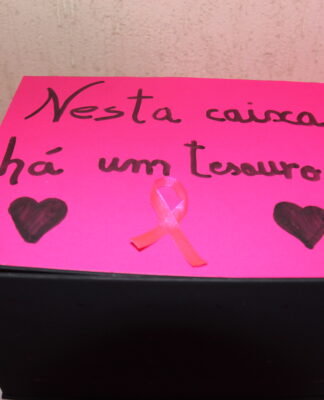 Nesta caixa
há um tesouro